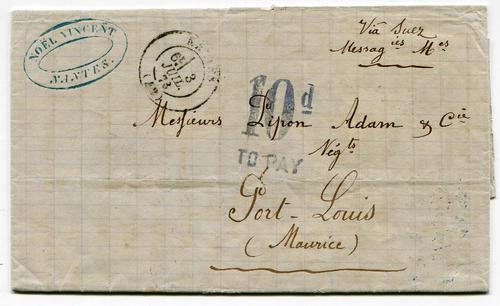 NOËL VINCENT
NANTES.
Via Suez
Messag^ies M^es
6E
3
JUIL.
73
10d
TO PAY
Messieurs Lipon Adam & Cie
Négts
Port-Louis
(Maurice)